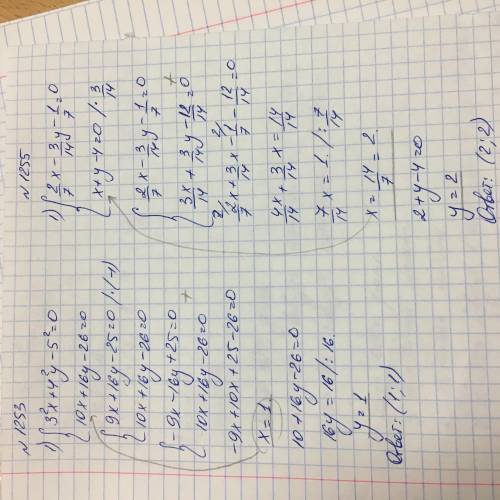 №1253
1) {3²x+4²y-5²=0
{10x+16y-26=0
{9x+16y-25=0 /·(-1)
{10x+16y-26=0
{-9x-16y+25=0
+
{10x+16y-26=0
-9x+10x+25-26=0
x=1
10+16y-26=0
16y=16 /:16
y=1
Ответ: (1;1)
№1255
1) {2/7 x - 3/14 y - 1/7 = 0
{x+y-4=0 /· 3/14
{2/7 x - 3/14 y - 1/7 = 0
+
{3/14 x + 3/14 y - 12/14 = 0
2/ 2/7 x + 3/14 x - 2/ 1/7 - 12/14 = 0
4x/14 + 3/14 x = 14/14
7/14 x = 1 /: 7/14
x = 14/7 = 2
2+y-4=0
y=2
Ответ: (2;2)